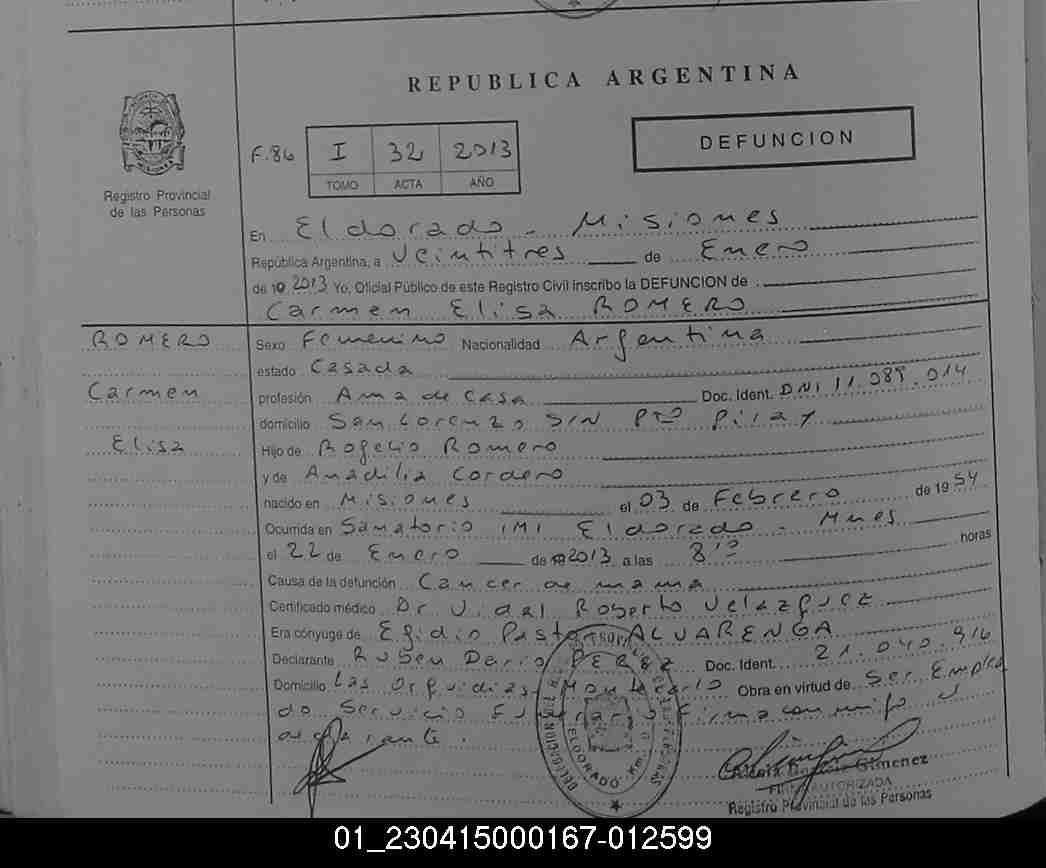 REPUBLICA ARGENTINA
Registro Provincial
de las Personas
F.86 I 32 2013
TOMO ACTA AÑO
DEFUNCION
En Eldorado - Misiones
República Argentina, a Veintitres de Enero
de 19 2013 Yo, Oficial Público de este Registro Civil inscribo la DEFUNCION de
Carmen Elisa ROMERO
ROMERO
Carmen
Elisa
Sexo Femenino Nacionalidad Argentina
estado Casada
profesión Ama de Casa Doc. Ident. DNI 11.089.014
domicilio San Lorenzo S/N Pto Piray
Hijo de Rogelio Romero
y de Anadilia Cordero
nacido en Misiones el 03 de Febrero de 1954
Ocurrida en Sanatorio IMI Eldorado - Mnes
el 22 de Enero de 2013 a las 8¹⁰ horas
Causa de la defunción Cancer de mama
Certificado médico Dr. Vidal Roberto Velazquez
Era cónyuge de Egidio Pastor ALVARENGA
Declarante Ruben Dario PEREZ Doc. Ident. 21.040.916
Domicilio Las Orquidias Montecarlo Obra en virtud de Ser Emplea
do Servicio Funerario Firma conmigo el
declarante.
DELEGACION
ELDORADO Km
Gimenez
FIRMA AUTORIZADA
Registro Provincial de las Personas
01_230415000167-012599